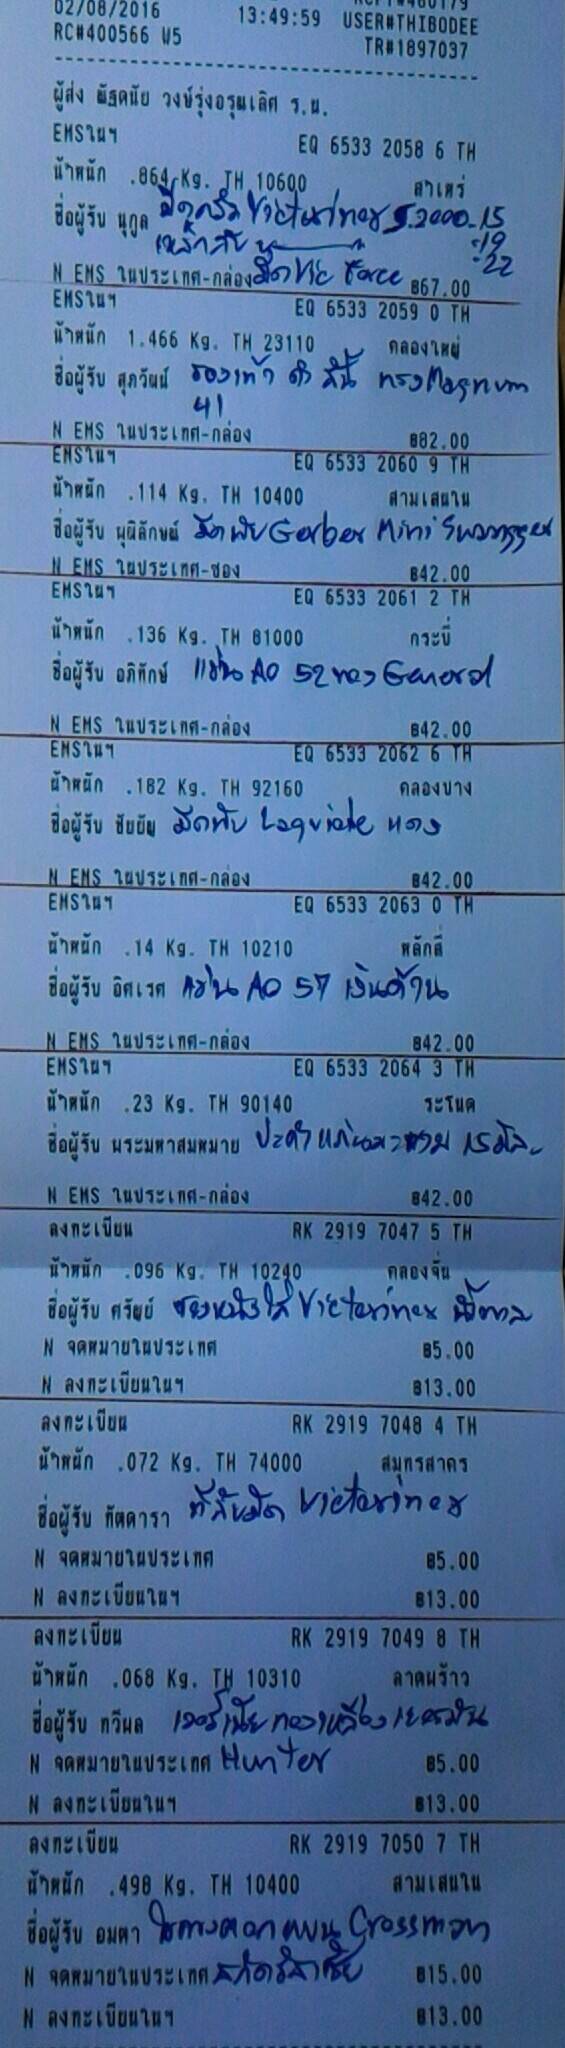 02/08/2016 13:49:59 USER#THIBODEE
RC#400566 W5 TR#1897037
ผู้ส่ง พัฐดนัย วงษ์รุ่งอรุณเลิศ ร.น.
EMSในฯ EQ 6533 2058 6 TH
น้ำหนัก .864 Kg. TH 10600 สาเหร่
ชื่อผู้รับ นุกูล Victorinox 5.2000.15
.19
.22
N EMS ในประเทศ-กล่อง มีด Vic Force ฿67.00
EMSในฯ EQ 6533 2059 0 TH
น้ำหนัก 1.466 Kg. TH 23110 คลองใหญ่
ชื่อผู้รับ สุภวัฒน์ รองเท้า ดำ ทรง Magnum
41
N EMS ในประเทศ-กล่อง ฿82.00
EMSในฯ EQ 6533 2060 9 TH
น้ำหนัก .114 Kg. TH 10400 สามเสนใน
ชื่อผู้รับ มีดพับ Gerber Mini Swagger
N EMS ในประเทศ-ซอง ฿42.00
EMSในฯ EQ 6533 2061 2 TH
น้ำหนัก .136 Kg. TH 81000 กระบี่
ชื่อผู้รับ อภิทักษ์ แว่น AO 52 ทอง General
N EMS ในประเทศ-กล่อง ฿42.00
EMSในฯ EQ 6533 2062 6 TH
น้ำหนัก .182 Kg. TH 92160 คลองปาง
ชื่อผู้รับ ชัยยัน มีดพับ Laguiole แดง
N EMS ในประเทศ-กล่อง ฿42.00
EMSในฯ EQ 6533 2063 0 TH
น้ำหนัก .14 Kg. TH 10210 หลักสี่
ชื่อผู้รับ อิศเรศ แว่น AO 57 เงินด้าน
N EMS ในประเทศ-กล่อง ฿42.00
EMSในฯ EQ 6533 2064 3 TH
น้ำหนัก .23 Kg. TH 90140 ระโนด
ชื่อผู้รับ พระมหาสมหมาย ประคำ แก่นมะขาม 15 มิล
N EMS ในประเทศ-กล่อง ฿42.00
ลงทะเบียน RK 2919 7047 5 TH
น้ำหนัก .096 Kg. TH 10240 คลองจั่น
ชื่อผู้รับ ศรัณย์ ซองหนังใส่ Victorinox น้ำตาล
N จดหมายในประเทศ ฿5.00
N ลงทะเบียนในฯ ฿13.00
ลงทะเบียน RK 2919 7048 4 TH
น้ำหนัก .072 Kg. TH 74000 สมุทรสาคร
ชื่อผู้รับ ทัตดารา ที่ลับมีด Victorinox
N จดหมายในประเทศ ฿5.00
N ลงทะเบียนในฯ ฿13.00
ลงทะเบียน RK 2919 7049 8 TH
น้ำหนัก .068 Kg. TH 10310 ลาดพร้าว
ชื่อผู้รับ ทวีผล ทองเหลือง เยอรมัน
N จดหมายในประเทศ Hunter ฿5.00
N ลงทะเบียนในฯ ฿13.00
ลงทะเบียน RK 2919 7050 7 TH
น้ำหนัก .498 Kg. TH 10400 สามเสนใน
ชื่อผู้รับ อมตา Crossman
N จดหมายในประเทศ ฿15.00
N ลงทะเบียนในฯ ฿13.00